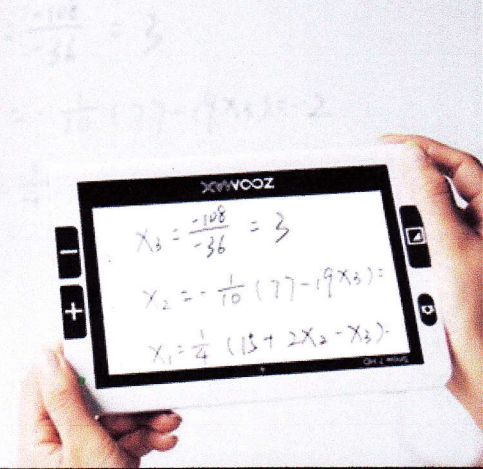 = -108/-36 = 3
= -1/10 (77-19x3) = -2
ZOOMAX
x3 = -108/-36 = 3
x2 = -1/10 (77-19x3) =
x1 = 1/4 (15+2x2-x3).
Snow 7 HD